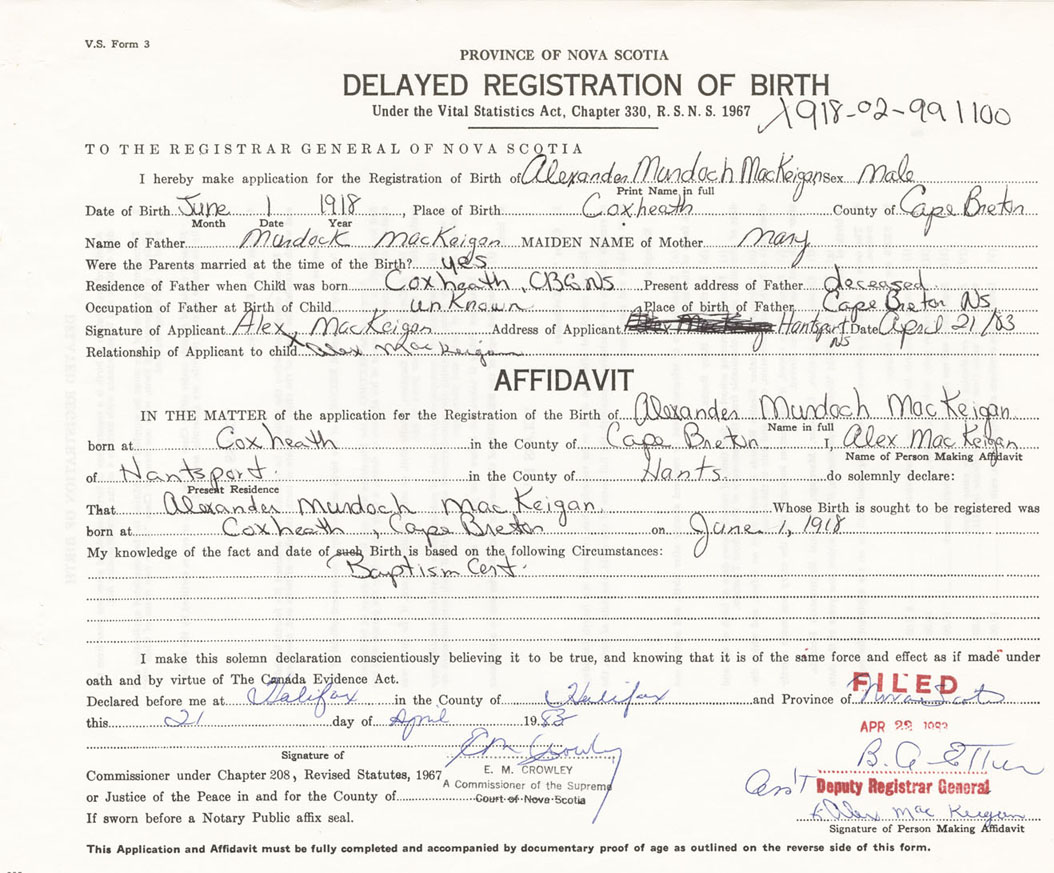 V.S. Form 3
PROVINCE OF NOVA SCOTIA
DELAYED REGISTRATION OF BIRTH
Under the Vital Statistics Act, Chapter 330, R.S.N.S. 1967 1918-02-991100
TO THE REGISTRAR GENERAL OF NOVA SCOTIA
I hereby make application for the Registration of Birth of Alexander Murdoch MacKeigan Sex Male
Print Name in full
Date of Birth June 1 1918, Place of Birth Coxheath County of Cape Breton
Month Date Year
Name of Father Murdock MacKeigan MAIDEN NAME of Mother Mary
Were the Parents married at the time of the Birth? yes
Residence of Father when Child was born Coxheath, CBCo NS Present address of Father deceased
Occupation of Father at Birth of Child unknown Place of birth of Father Cape Breton NS
Signature of Applicant Alex MacKeigan Address of Applicant Hantsport NS Date April 21/83
Relationship of Applicant to child Alex MacKeigan
AFFIDAVIT
IN THE MATTER of the application for the Registration of the Birth of Alexander Murdoch MacKeigan
Name in full
born at Coxheath in the County of Cape Breton I, Alex MacKeigan
Name of Person Making Affidavit
of Hantsport in the County of Hants do solemnly declare:
Present Residence
That Alexander Murdoch MacKeigan Whose Birth is sought to be registered was
born at Coxheath, Cape Breton on June 1, 1918
My knowledge of the fact and date of such Birth is based on the following Circumstances:
Baptism Cert.
I make this solemn declaration conscientiously believing it to be true, and knowing that it is of the same force and effect as if made under
oath and by virtue of The Canada Evidence Act.
FILED
Declared before me at Halifax in the County of Halifax and Province of Nova Scotia
this 21 day of April 1983
APR 22 1983
E M Crowley
B. A. Etter
Signature of
E. M. CROWLEY
Commissioner under Chapter 208, Revised Statutes, 1967
A Commissioner of the Supreme
Ass't Deputy Registrar General
or Justice of the Peace in and for the County of Court of Nova Scotia
x Alex MacKeigan
If sworn before a Notary Public affix seal.
Signature of Person Making Affidavit
This Application and Affidavit must be fully completed and accompanied by documentary proof of age as outlined on the reverse side of this form.